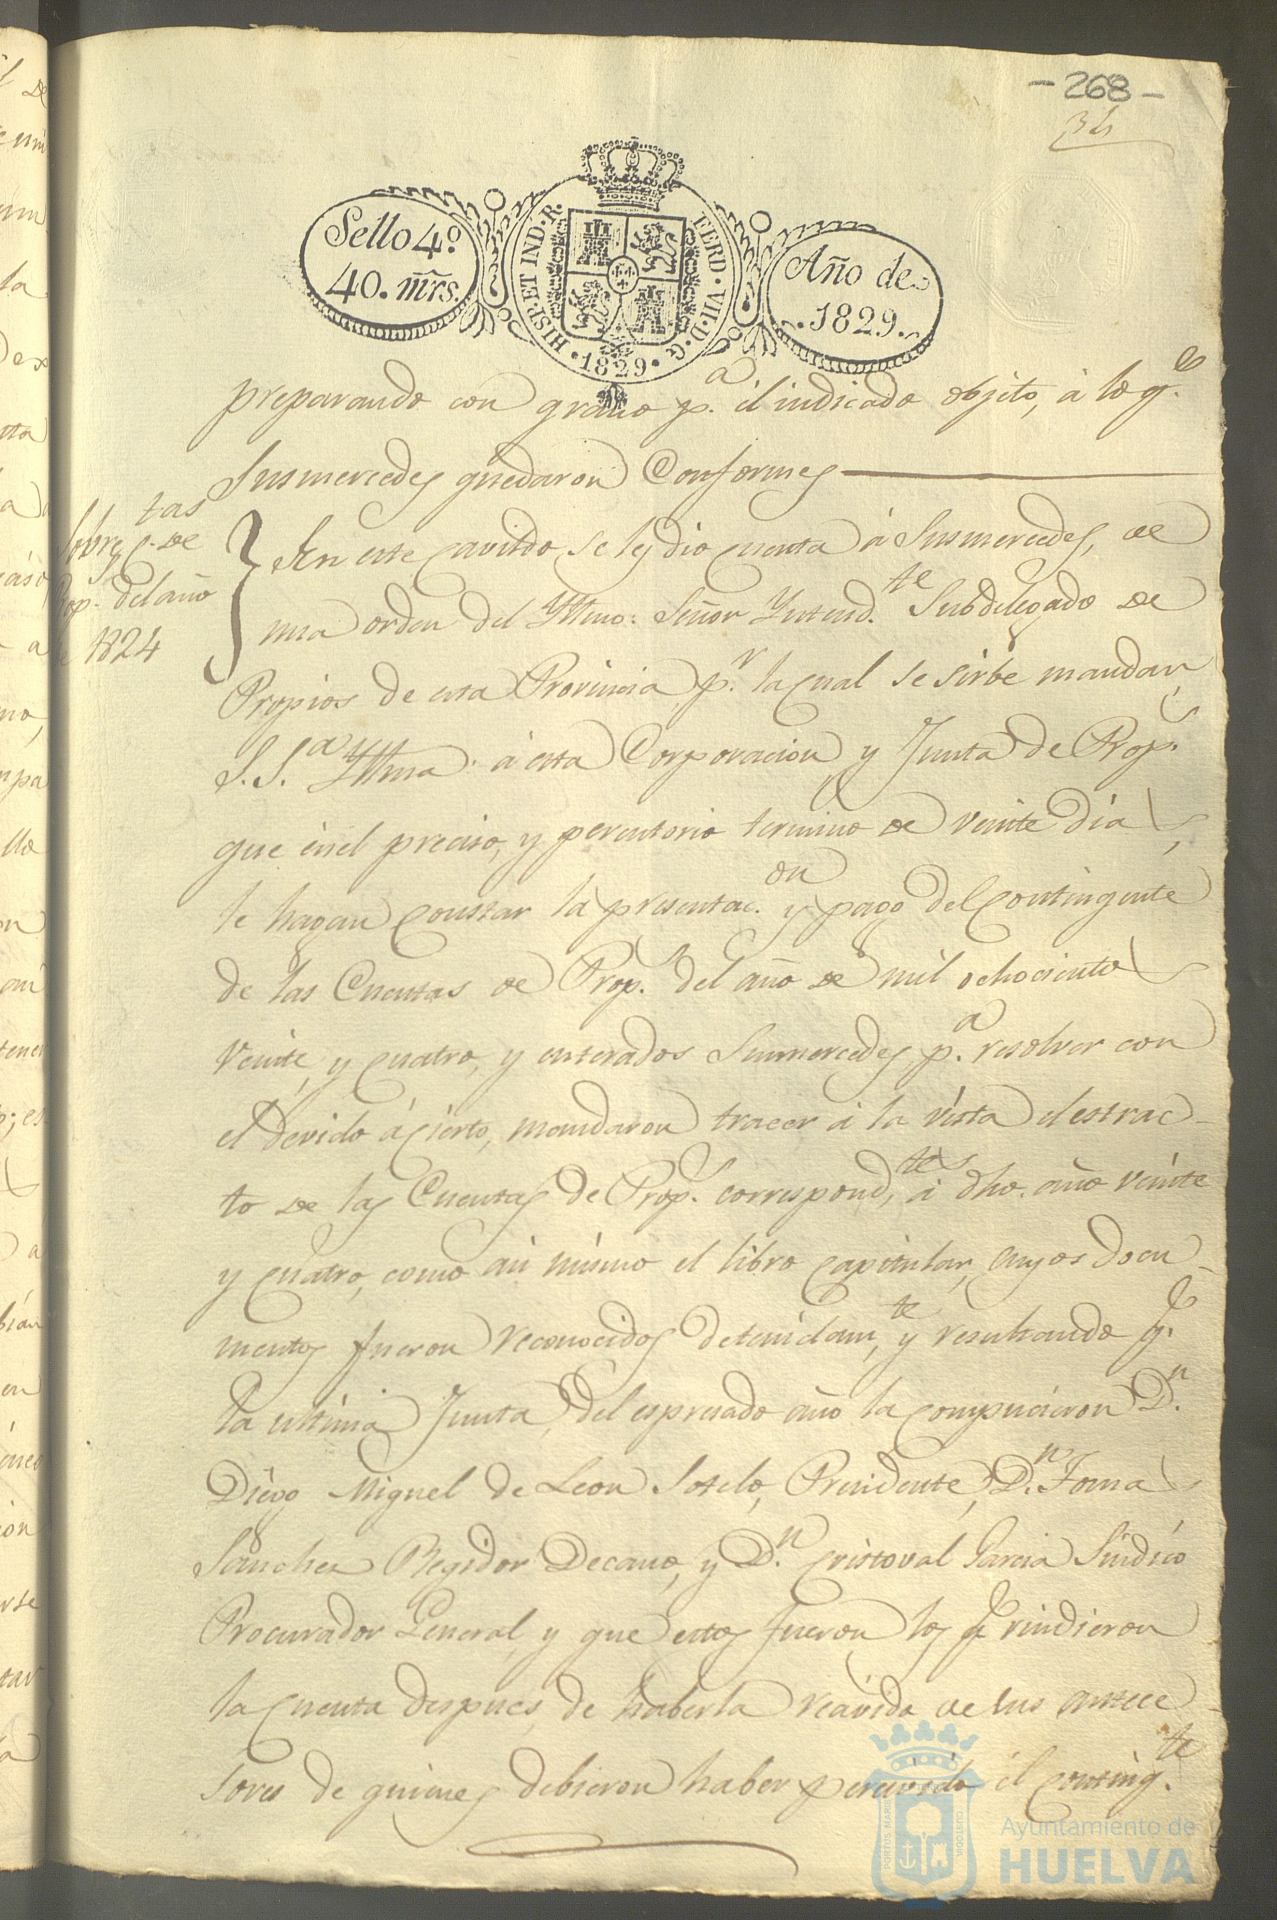 - 268 -
34
Sello 4º
40. mrs.
HISP. ET IND. R. FERD. VII. D. G. 1829.
Año de
1829.
preparando con grano p.ª el indicado objeto, à lo q.e
Susmercedes quedaron Conformes
Sobre C.tas de
Prop.s del año
de 1824
En este cavildo se les dio cuenta à Susmercedes, de
una orden del Yltmo: Señor Yntend.te Subdelegado de
Propios de esta Provincia, p.r la cual se sirbe mandar
S. S.ª Yltma. à esta Corporacion y Junta de Prop.s
que ènel preciso, y perentorio termino de veinte dias
le hagan constar la presentac.on y pago del Contingente
de las Cuentas de Prop.s del año de mil ochocientos
veinte y cuatro, y enterados Susmercedes p.a resolver con
el devido àcierto, mandaron traeer à la vista el estrac-
to de las Cuentas de Prop.s correspond.tes à dho. año veinte
y cuatro, como asi mismo el libro capitular, cuyos docu-
mentos fueron reconocidos detenidam.te, y resultando q.e
la ultima Junta del espresado año la compucieron D.n
Diego Miguel de Leon Sotelo, Presidente, D.n Tomas
Sanchez Regidor Decano, y D.n Cristoval Garcia Sindico
Procurador General, y que estos fueron los q.e rindieron
la cuenta despues de haberla recivido de sus antece-
sores de quienes debieron haber percivido èl conting.te
PORTUS MARIS CUSTODIA
Ayuntamiento de
HUELVA